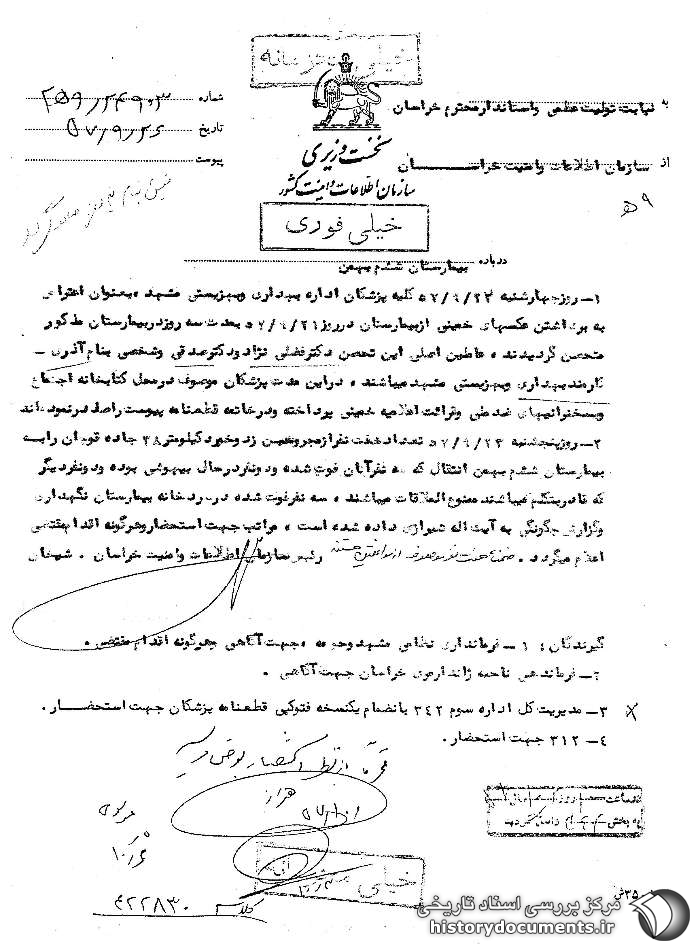 خیلی محرمانه
به نیابت تولیت عظمی واستاندارمحترم خراسان
شماره
از سازمان اطلاعات وامنیت خراسان
تاریخ ۵۷/۹/۲۶
پیوست
نخست وزیری
سازمان اطلاعات وامنیت کشور
ﻫ ۹
خیلی فوری
درباره بیمارستان ششم بهمن
۱- روزچهارشنبه ۵۷/۹/۲۲ کلیه پزشکان اداره بهداری وبهزیستی مشهد بعنوان اعتراض
به برداشتن عکسهای خمینی ازبیمارستان درروز ۵۷/۹/۲۱ بمدت سه روزدربیمارستان مذکور
متحصن گردیدند ، عاملین اصلی این تحصن دکترفضلی نژاد ودکترصدقی وشخصی بنام آذری -
کارمندبهداری وبهزیستی مشهد میباشند ، دراین مدت پزشکان موصوف درمحل کتابخانه اجتماع
وبسخنرانیهای ضدملی وقرائت اعلامیه خمینی پرداخته ودرخاتمه قطعنامه پیوست راصادرنموده اند
۲- روزپنجشنبه ۵۷/۹/۲۳ تعداد هفت نفرازمجروحین زدوخورد کیلومتر ۳۸ جاده قوچان رابه
بیمارستان ششم بهمن انتقال که سه نفرآنان فوت شده ودونفردرحال بیهوشی بوده ودونفردیگر
که قادربتکلم میباشند ممنوع الملاقات میباشند ، سه نفرفوت شده درسردخانه بیمارستان نگهداری
وگزارش چگونگی به آیت اله شیرازی داده شده است ، مراتب جهت استحضاروهرگونه اقدام مقتضی
اعلام میگردد . رئیس سازمان اطلاعات وامنیت خراسان . شیخان
گیرندگان : ۱- فرمانداری نظامی مشهدوحومه ، جهت آگاهی وهرگونه اقدام مقتضی .
۲- فرماندهی ناحیه ژاندارمری خراسان جهت آگاهی .
۳- مدیریت کل اداره سوم ۳۴۲ بانضمام یکنسخه فتوکپی قطعنامه پزشکان جهت استحضار .
۴- ۳۱۲ جهت استحضار .
خیلی
۴۲۲۸۳۰
مرکز بررسی اسناد تاریخی
historydocuments.ir